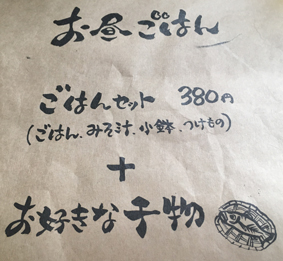 お昼ごはん
ごはんセット 380円
(ごはん、みそ汁、小鉢、つけもの)
+
お好きな干物